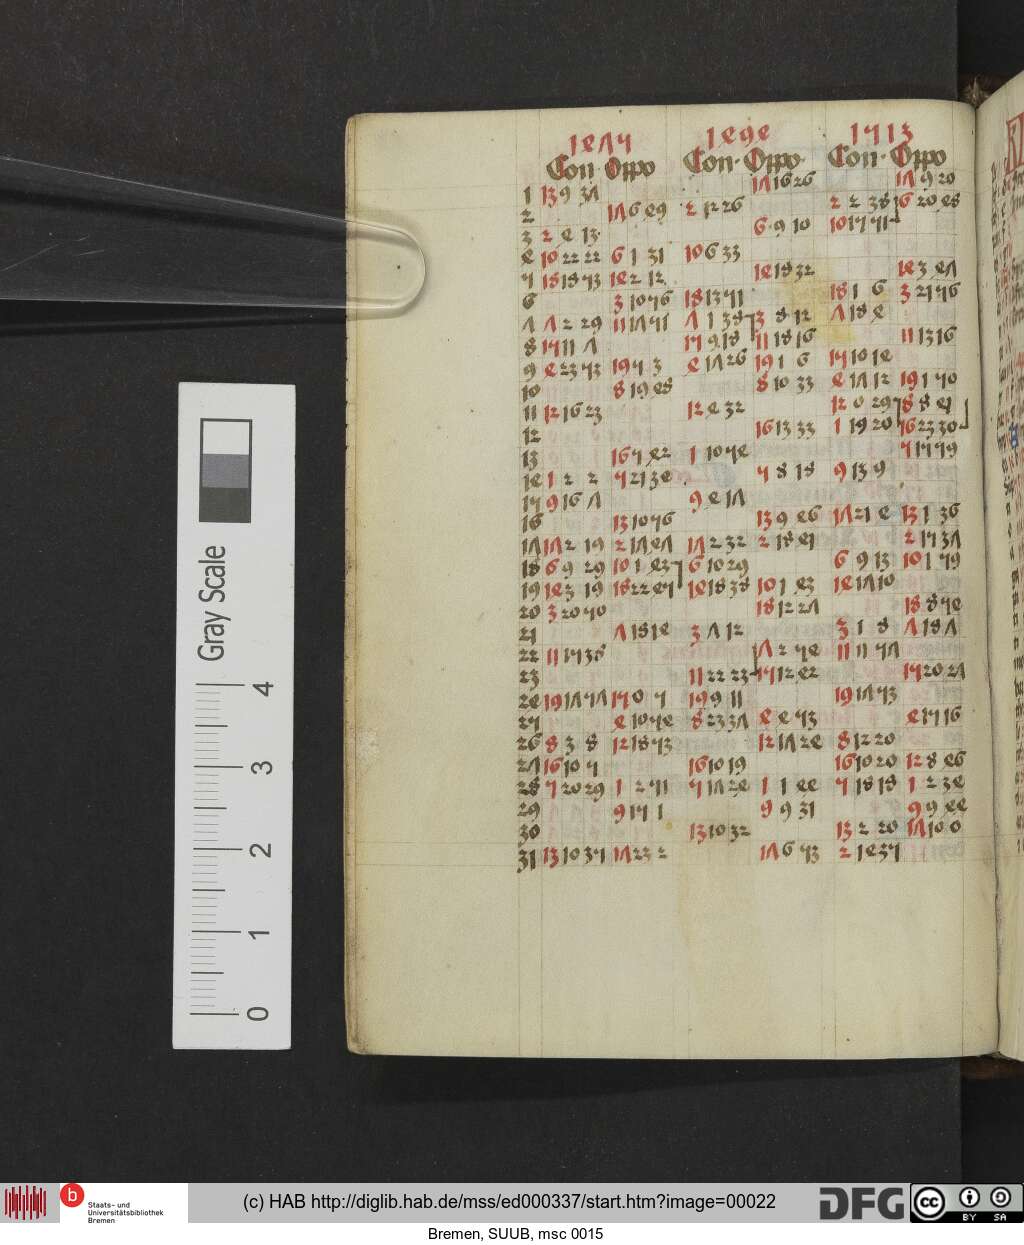 1475 1494 1513
Con Oppo Con Oppo Con Oppo
17 16 26 17 9 20
1 13 9 37
2 17 6 49 2 12 26 2 2 38 6 20 48
3 2 4 13 6 9 10 10 17 51
4 10 22 22 6 1 31 10 6 33
5 18 18 53 14 2 12 14 18 32 14 3 47
6 3 10 56 18 13 51 18 1 6 3 21 56
7 7 2 29 11 17 51 7 1 38 3 8 12 7 18 4
8 15 11 7 15 9 18 11 18 16 11 13 16
9 4 23 53 19 5 3 4 17 26 19 1 6 15 10 14
10 8 19 48 8 10 33 4 17 12 19 1 50
11 12 16 23 12 4 32 12 0 29 8 8 41
12 16 13 33 1 19 20 16 23 30
13 16 5 42 1 10 54 5 15 59
14 1 2 2 5 21 34 5 8 18 9 13 9
15 9 16 7 9 4 17
16 13 10 56 13 9 46 17 21 4 13 1 36
17 17 2 19 2 17 47 17 2 32 2 18 41 2 15 37
18 6 9 29 10 1 43 6 10 29 6 9 13 10 1 59
19 14 3 19 18 22 45 14 18 38 10 1 43 14 17 10
20 3 20 50 18 12 27 18 8 54
21 7 18 14 3 7 12 3 1 8 7 18 7
22 11 15 38 7 2 54 11 11 57
23 11 22 23 15 12 42 15 20 27
24 19 17 57 15 0 5 19 9 11 19 17 53
25 4 10 54 8 23 37 4 4 53 4 15 16
26 8 3 8 12 18 53 12 17 24 8 12 20
27 16 10 5 16 10 19 16 10 20 12 8 46
28 5 20 29 1 2 51 5 17 24 1 1 44 5 18 18 1 2 34
29 9 15 1 9 9 31 9 9 44
30 13 10 32 13 2 20 17 10 0
31 13 10 35 17 23 2 17 6 53 2 14 35
Gray Scale
4
3
2
1
0
b
Staats- und
Universitätsbibliothek
Bremen
(c) HAB http://diglib.hab.de/mss/ed000337/start.htm?image=00022
DFG
cc BY SA
Bremen, SUUB, msc 0015